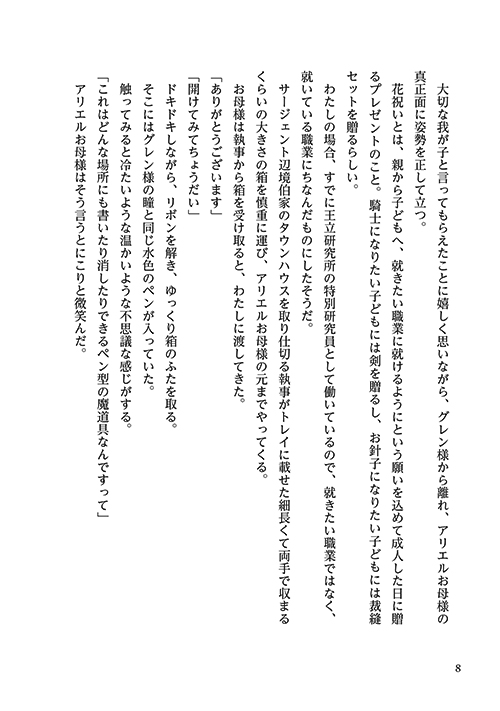 大切な我が子と言ってもらえたことに嬉しく思いながら、グレン様から離れ、アリエルお母様の
真正面に姿勢を正して立つ。
　花祝いとは、親から子どもへ、就きたい職業に就けるようにという願いを込めて成人した日に贈
るプレゼントのこと。騎士になりたい子どもには剣を贈るし、お針子になりたい子どもには裁縫
セットを贈るらしい。
　わたしの場合、すでに王立研究所の特別研究員として働いているので、就きたい職業ではなく、
就いている職業にちなんだものにしたそうだ。
　サージェント辺境伯家のタウンハウスを取り仕切る執事がトレイに載せた細長くて両手で収まる
くらいの大きさの箱を慎重に運び、アリエルお母様の元までやってくる。
　お母様は執事から箱を受け取ると、わたしに渡してきた。
「ありがとうございます」
「開けてみてちょうだい」
　ドキドキしながら、リボンを解き、ゆっくり箱のふたを取る。
　そこにはグレン様の瞳と同じ水色のペンが入っていた。
　触ってみると冷たいような温かいような不思議な感じがする。
「これはどんな場所にも書いたり消したりできるペン型の魔道具なんですって」
　アリエルお母様はそう言うとにこりと微笑んだ。
8